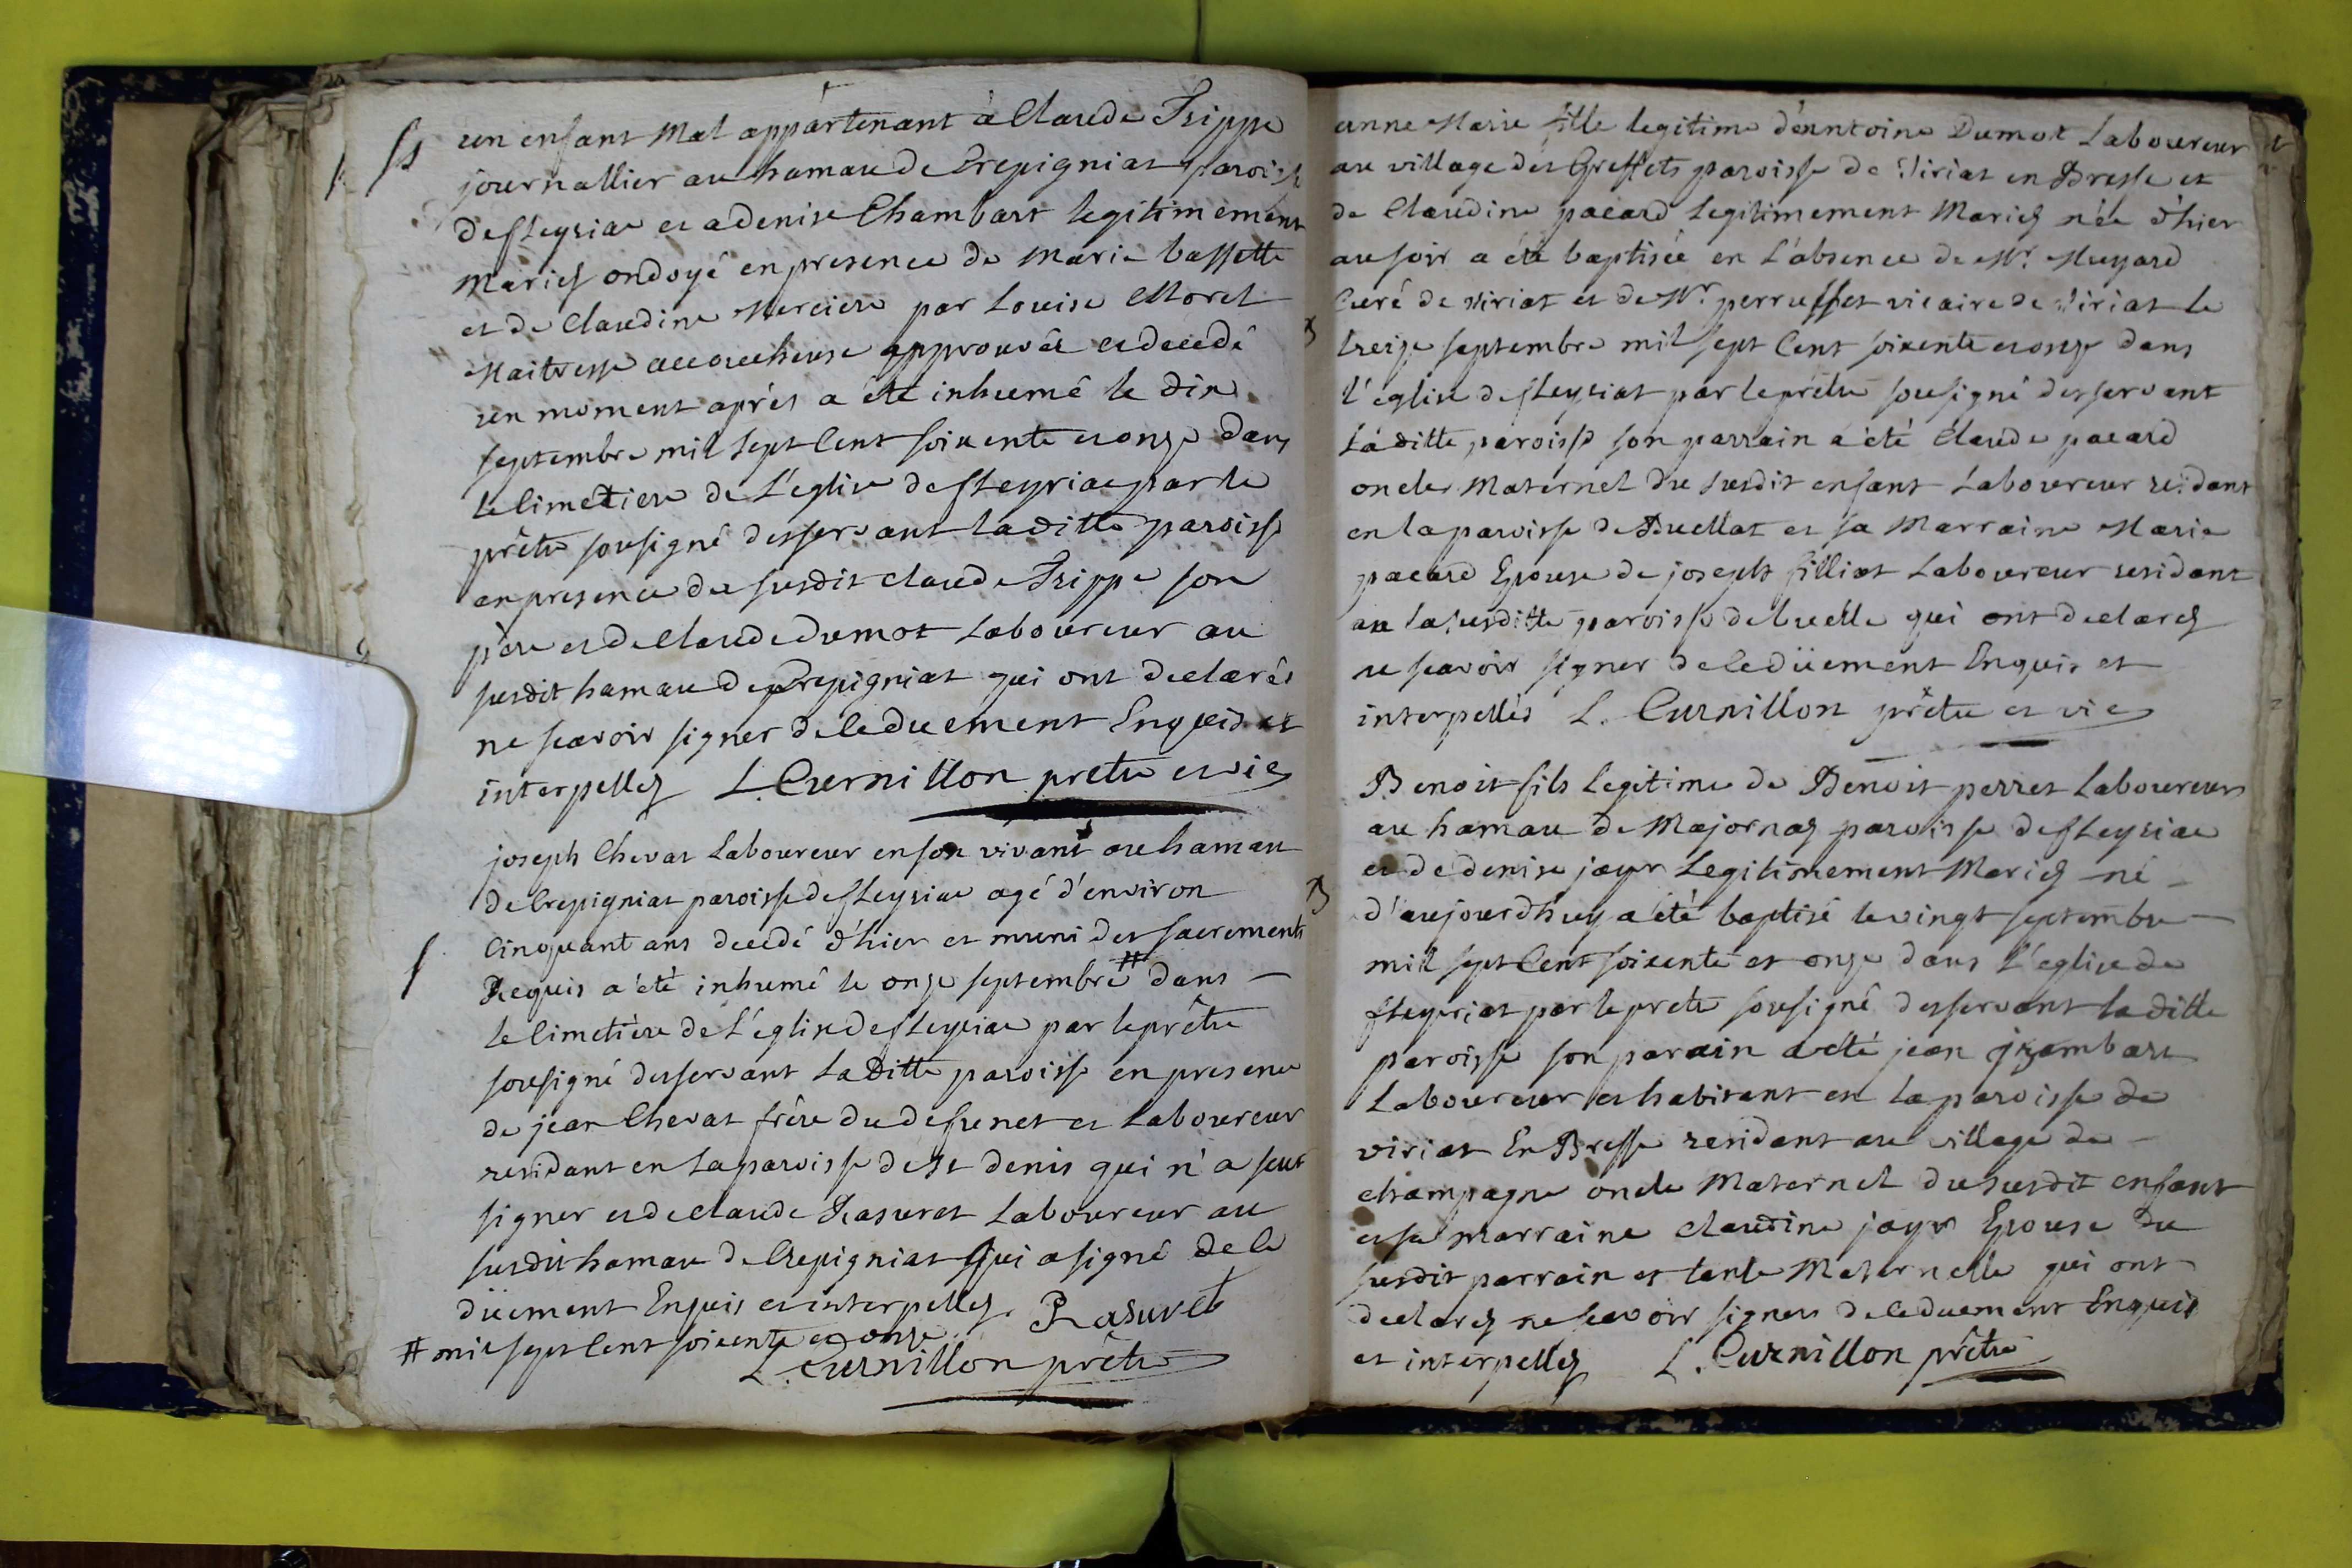 un enfant Mal appartenant à Claude Frippe
journallier au hamau de Crepigniat paroisse
de fleyriac et a denise Chambart legitimement
Mariez ondoyé en presence de Marie bassette
et de Claudine Merciere par Louise Morel
Maitresse accoucheuse approuvée et decedé
un moment aprés a été inhumé le dix
septembre mil sept Cent soixente et onze dans
le Cimetiere de L'eglise de fleyriac par le
prêtre sousigné desservant la ditte paroisse
en presence du susdit claude Frippe son
père et de Claude dumot Laboureur au
susdit hamau de Crepigniat qui ont declarés
ne scavoir signer de ce duement Enquis et
interpellez L. Curnillon pretre et vic
joseph Chevat Laboureur en son vivant au hamau
de Crepigniat paroisse de fleyriac agé d'environ
Cinquant ans decedé d'hier et muni des sacrements
Requis a été inhumé le onze septembre # dans
le Cimetière de L'eglise de fleyriac par le prêtre
sousigné desservant La ditte paroisse en presence
de jean Chevat frère du defunct et Laboureur
residant en La paroisse de St denis qui n'a sçut
signer et de claude Rasuret Laboureur au
susdit hamau de Crepigniat Qui a signé de ce
düement Enquis et interpellez. Rasuret
# mil sept Cent soixente et onze
L. Curnillon prêtre
anne Marie fille legitime d'anntoine Dumot Laboureur
au village des Greffets paroisse de Viriat en Bresse et
de Claudine pacard Legitimement Mariez née d'hier
au soir a été baptisée en L'absence de Mr. Muyard
Curé de Viriat et de Mr. perrusset vicaire de Viriat le
treize septembre mil sept Cent soixente et onze dans
L'église de fleyriat par le prêtre sousigné desservant
La ditte paroisse son parrain a été Claude pacard
oncle Maternel du susdit enfant Laboureur residant
en la paroisse de Buellat et sa Marraine Marie
pacard Epouse de joseph filliat Laboureur residant
au la susditte paroisse de buelle qui ont declarez
ne scavoir signer de ce düement Enquis et
interpellés L. Curnillon prêtre et vic
Benoit fils Legitime de Benoit perret Laboureur
au hamau de Majornaz paroisse de fleyriac
et de denise jayr Legitimement Mariez né
d'aujourdhuy a été baptisé le vingt septembre
mil sept Cent soixente et onze dans L'eglise de
fleyriat par le pretre sousigné desservant la ditte
paroisse son parain a eté jean
Laboureur et habitant en la paroisse de
viriat En Bresse residant au village de
champagne oncle Maternel du susdit enfant
et sa marraine claudine jayr Epouse du
susdit parrain et tante Maternelle qui ont
declarez ne scavoir signer de ce duement Enquis
et interpellez L. Curnillon prêtre